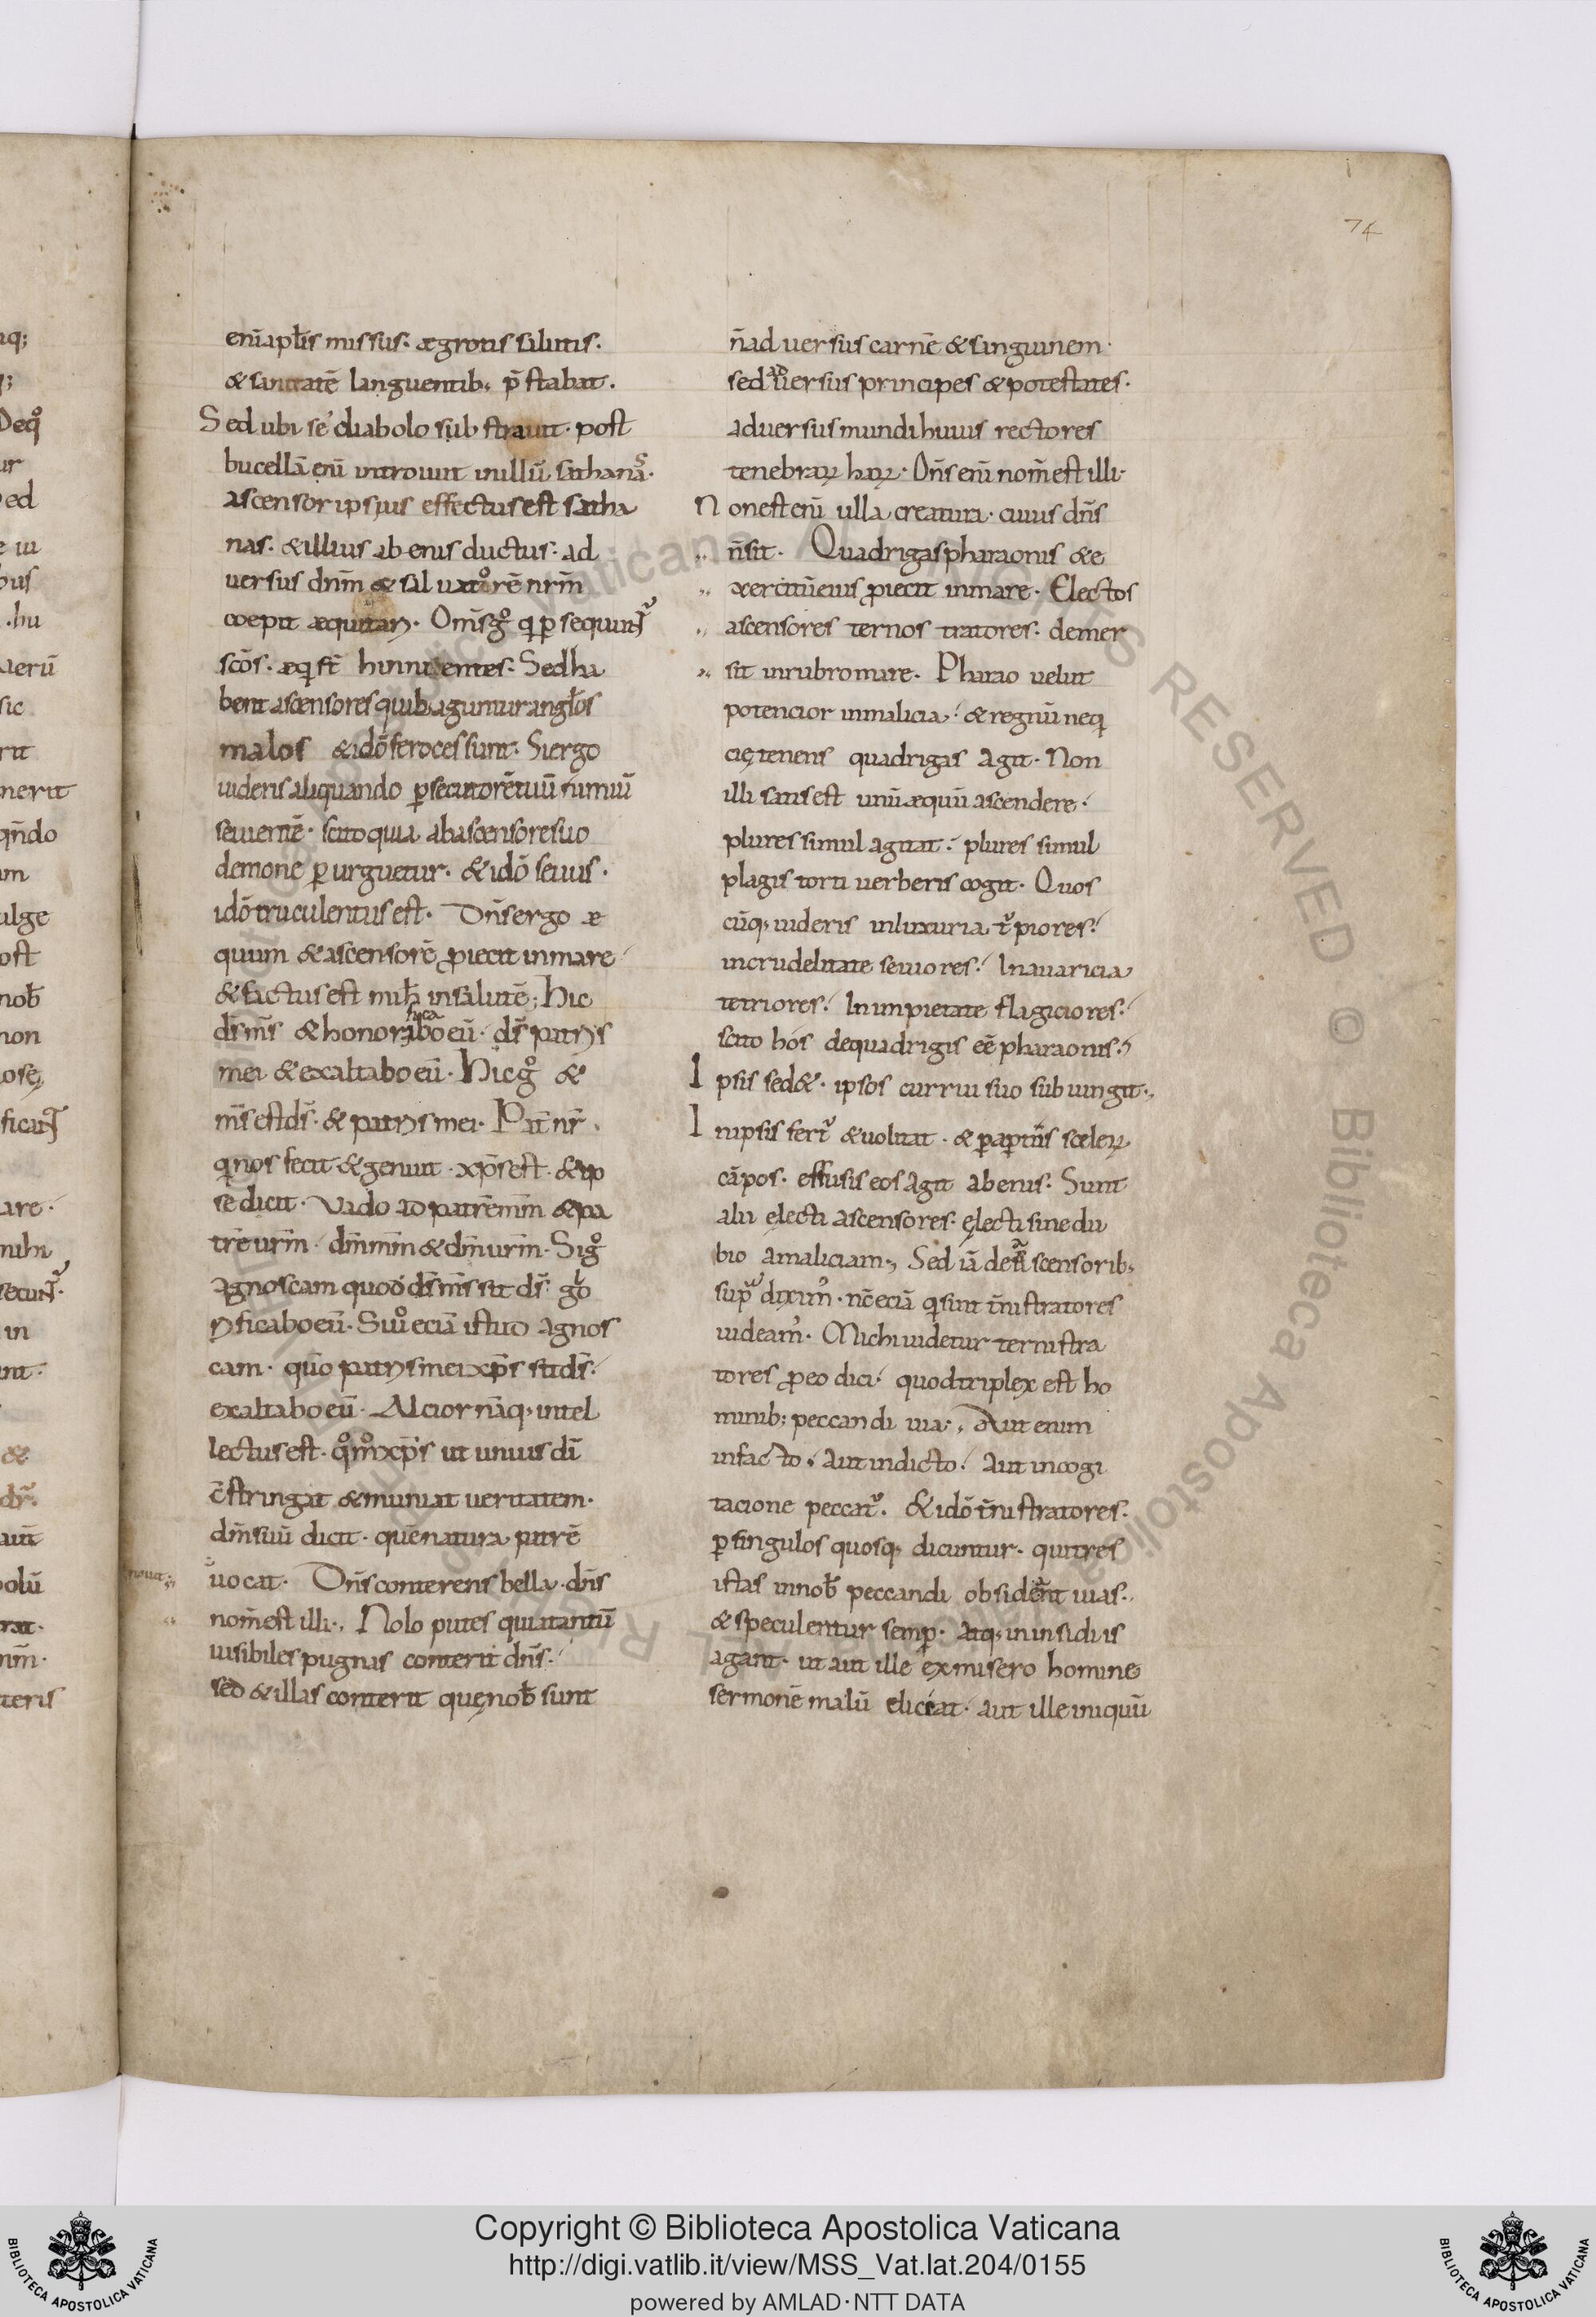 74
enī apłis missus. ægrotis salutis.
& sanitatē languentib; p̄stabat.
Sed ubi se diabolo substrauit. post
bucellā enī introiuit in illū sathanās.
ascensor ipsius effectus est satha
nas. & illius abenis ductus. ad
uersus dnm̄ & saluatorē nrm̄
coepit æquitari. Om̄s gͦ q p sequunt
sc̄os. æq st̄ hinnientes. Sed ha
bent ascensores quib; aguntur angłos
malos & idō feroces sunt. Si ergo
uideris aliquando psecutorē tuū nimiū
seuientē. scito quia ab ascensore suo
demone purguetur. & idō seuus.
idō truculentus est. Dn̄s ergo æ
quum & ascensorē proiecit in mare
& factus est mih in salutē; Hic
ds̄ ms̄ & honorificabo eū. ds̄ patris
mei & exaltabo eū. Hic gͦ &
ms̄ est ds̄. & patris mei. Pat̄ nr̄.
q nos fecit & genuit. xp̄s est. & ip
se dicit. Vado ad patrē mm̄ & pa
trē urm̄. dm̄ mm̄ & dm̄ urm̄. Si gͦ
agnoscam quod ds̄ ms̄ sit ds̄. glo
rificabo eū. Si uͦ eciā istud agnos
cam. quo patris mei xp̄s sit ds̄.
exaltabo eū. Alcior nāq; intel
lectus est. qͦmͦ xp̄s ut unius di
c̄stringat & muniat ueritatem.
dm̄ suū dicit. quē natura patrē
uocat. Dn̄s conterens bella. dn̄s
nom̄ est illi. Nolo putes quia tantū
uisibiles pugnas conterit dn̄s.
sed & illas conterit quę nob̄ sunt
n̄ aduersus carnē & sanguinem.
sed aduersus principes & potestates.
aduersus mundi huius rectores
tenebraꝝ haꝝ. Dn̄s enī nom̄ est illi.
Non est enī ulla creatura. cuius dn̄s
n̄ sit. Quadrigas pharaonis & e
xercitū eius proiecit in mare. Electos
ascensores ternos tratores. demer
sit in rubro mare. Pharao uelut
potencior in malicia. & regnū neq
cię tenens quadrigas agit. Non
illi satis est unū æquū ascendere.
plures simul agitat. plures simul
plagis torti uerberis cogit. Quos
cūq; uideris in luxuria t̄piores.
in crudelitate seuiores. In auaricia
tetriores. In impietate flagiciores.
scito hos de quadrigis eē pharaonis.
Ipsis sed&. ipsos currui suo subiungit.
In ipsis fert̄ & uolitat. & p aptiis sceleꝝ
cāpos. effusis eos agit abenis. Sunt
alii electi ascensores. electi sine du
bio a maliciam. Sed iā de ascensorib;
supra diximꝰ. nc̄ eciā q sint t̄ni stratores
uideamꝰ. Michi uidetur terni stra
tores pro eo dici. quod triplex est ho
minib; peccandi uia. Aut enim
in facto. aut in dicto. aut in cogi
tacione peccat̄. & idō t̄ni stratores.
p singulos quosq; dicuntur. qui tres
istas in nob̄ peccandi obsideant uias.
& speculentur semp. atq; in insidiis
agant. ut aut ille ex misero homine
sermonē malū eliciat. aut ille iniquū
Copyright © Biblioteca Apostolica Vaticana
http://digi.vatlib.it/view/MSS_Vat.lat.204/0155
powered by AMLAD·NTT DATA